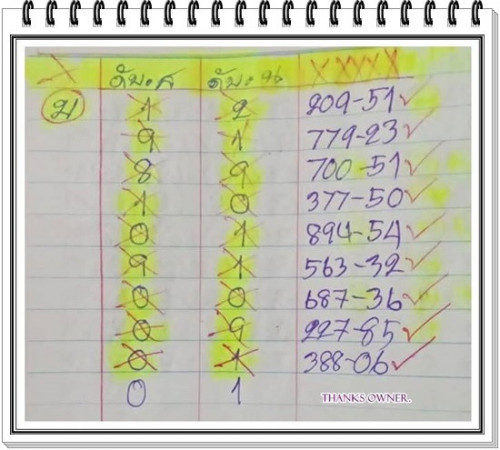 X ดับ.ส ดับ.น XXXX
ม 1 2 209-51
9 1 779-23
8 9 700-51
1 0 377-50
0 1 894-54
9 1 563-32
0 0 687-36
0 9 227-85
0 1 388-06
0 1
THANKS OWNER.